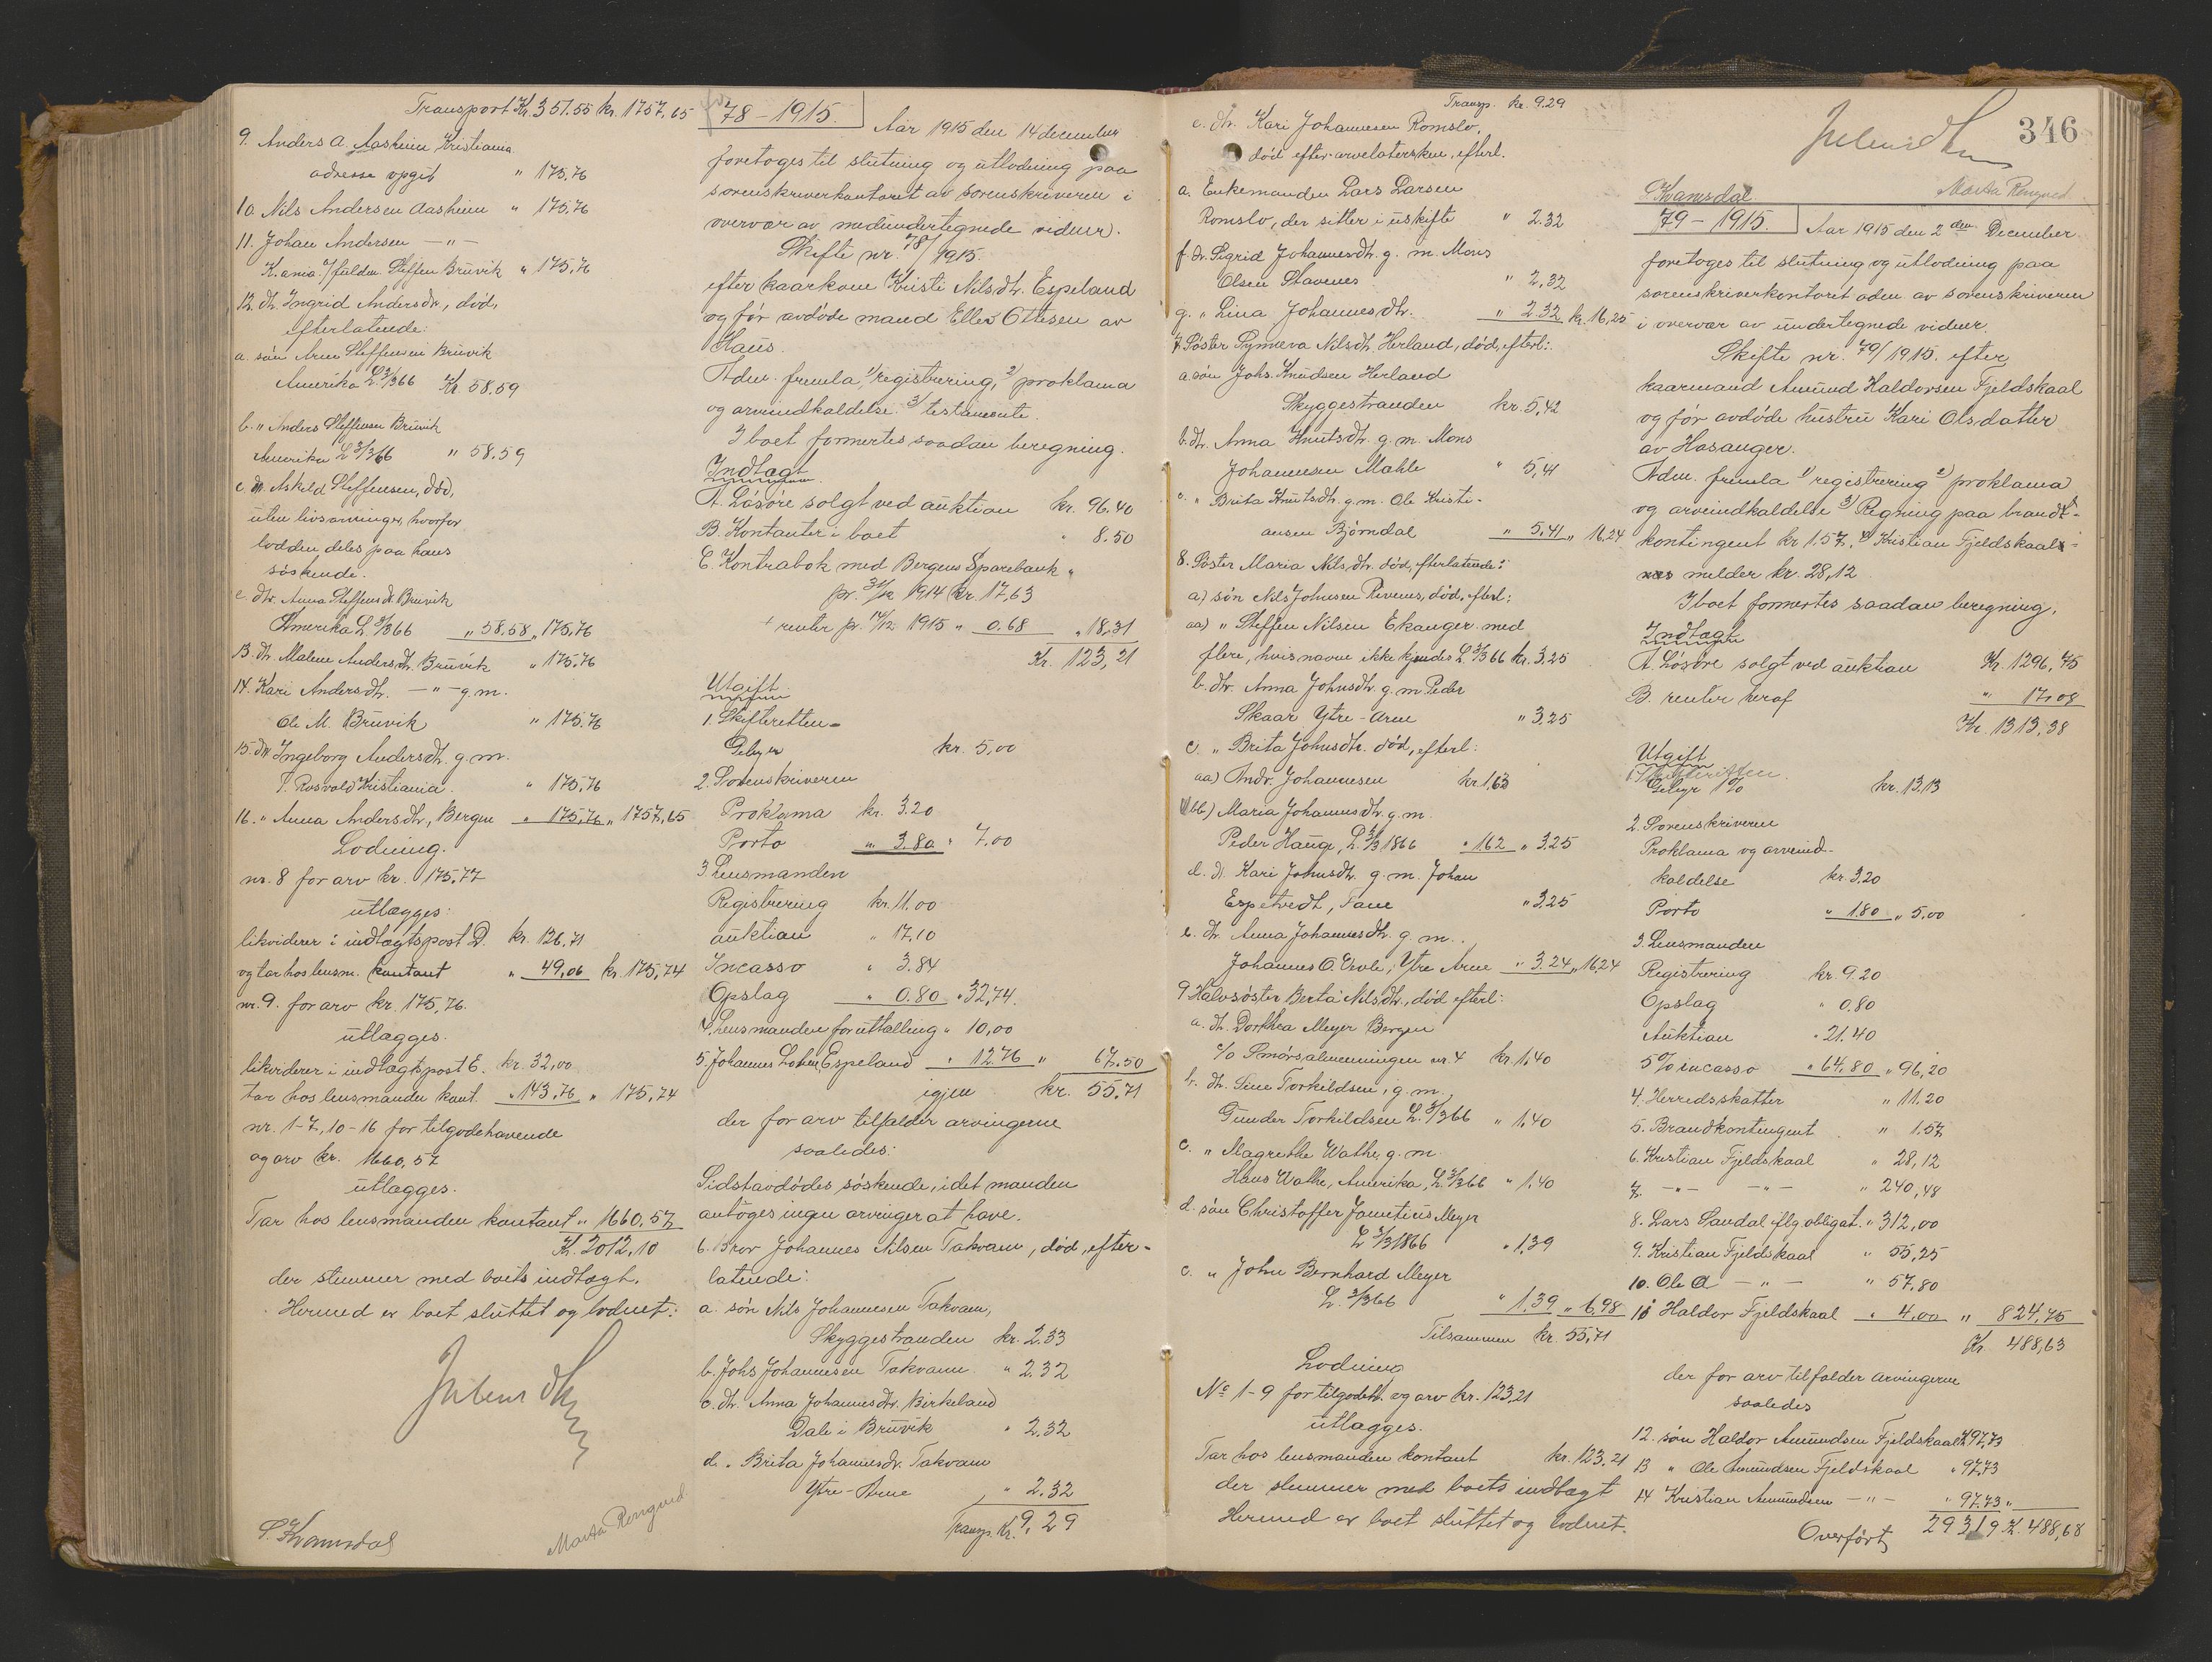 Transport Kr. 351.55 kr. 1757,65
9. Anders A. Aasheim Kristiania
adresse opgit " 175.76
10. Nils Andersen Aasheim " 175,76
11. Johan Andersen — " —
K.ania. v/fuldm. Steffen Bruvik " 175,76
12. dt. Ingrid Andersdtr, død,
efterlatende:
a. søn Arne Steffensen Bruvik
Amerika L 3/3 66 Kr. 58.59
b. " Anders Steffensen Bruvik
Amerika L 3/3 66 " 58.59
Askild Steffensen, død,
uten livsarvinger, hvorfor
lodden deles paa hans
søskende.
c. dtr. Anna Steffensdt. Bruvik
Amerika L. 3/3 66 " 58.58 " 175,76
13. dt. Malene Andersdt. Bruvik " 175.76
14. Kari Andersdtr. — " — g. m.
Ole M. Bruvik " 175.76
15. dtr. Ingeborg Andersdt. g. m.
P. Rosvold Kristiania. " 175,76
16. " Anna Andersdtr, Bergen " 175,76 " 1757,65
Lodning.
nr. 8 for arv kr. 175,77
utlægges:
likviderer i indtægtspost D. kr. 126,71
og tar hos lensm. kontant " 49,06 kr. 175,74
nr. 9. for arv kr. 175,76.
utlægges.
likviderer i indtægtspost E. kr. 32,00
tar hos lensmanden kont. " 143,76 " 175,74
nr. 1-7, 10-16 for tilgodehavende
og arv kr. 1660,57
utlægges.
Tar hos lensmanden kontant " 1660,57
Kr. 2012,10
der stemmer med boets indtægt.
Hermed er boet sluttet og loddnet:
S. Kvamsdal
Marta Rongved
78 - 1915.
Aar 1915 den 14 december
foretoges til slutning og utlodning paa
sorenskriverkontoret av sorenskriveren i
overvær av medundertegnede vidner.
Skifte nr. 78/1915.
efter kaarkone Kristi Nilsdtr. Espeland
og før avdøde mand Ellev Ottesen av
Haus.
Adm. fremla, 1/ registrering, 2/ proklama
og arveindkaldelse. 3/ testamente.
I boet formertes saadan beregning.
Indtægt
A. Løsøre solgt ved auktion kr. 96.40
B. Kontanter i boet " 8.50
C. Kontrabok med Bergens Sparebank "
pr. 31/12 1914 kr. 17,63
+ renter pr. 14/12 1915 " 0.68 " 18.31
Kr. 123,21
Utgift
1. Skifteretten =
Gebyr kr. 5,00
2. Sorenskriveren
Proklama kr. 3.20
Porto " 3.80 " 7.00
3 Lensmanden
Registrering kr. 11.00
auktion " 17,10
Incasso " 3.84
Opslag " 0.80 " 32,74.
4. Lensmanden for uttælling " 10,00
5. Johannes Espeland " 12.76 " 67.50
igjen kr. 55.71
der for arv tilfalder arvingerne
saaledes:
Sidstavdødes søskende, idet manden
antoges ingen arvinger at have.
6. Bror Johannes Nilsen Takvam, død, efter-
latende:
a. søn Nils Johannesen Takvam,
Skyggestranden kr. 2.33
b. Johs Johannesen Takvam " 2.32
c. dtr. Anna Johannesdtr. Birkeland
Dale i Bruvik " 2.32
d. " Brita Johannesdr. Takvam
Ytre-Arne " 2.32
Transp. Kr. 9,29
Transp. kr. 9.29
e. dtr. Kari Johannesen Romslo,
død efter arvelatersken, efterl.
a. Enkemanden Lars Larsen
Romslo, der sitter i uskifte " 2.32
f. dr. Sigrid Johannesdt. g. m. Mons
Olsen Stavenes " 2,32
g. " Lina Johannesdtr. " 2.32 kr. 16,25
7. Søster Synneva Nilsdtr. Herland, død, efterl.:
a. søn Johs. Knudsen Herland
Skyggestranden kr. 5,42
b. dtr. Anna Knutsdtr. g. m. Mons
Johannesen Mahle " 5,41
c. " Brita Knutsdtr. g. m. Ole Kristi-
ansen Bjørndal " 5,41 " 16.24
8. Søster Maria Nilsdtr. død, efterlatende:
a) søn Nils Johnsen Revenes, død, efterl:
aa) " Steffen Nilsen Ekanger med
flere, hvis navne ikke kjendes L. 3/3 66 kr. 3.25
b. dtr. Anna Johnsdtr. g. m. Peder
Skaar Ytre-Arne " 3,25
c. " Brita Johnsdtr. død, efterl:
aa) Andr. Johannesen kr. 1,63
bb) Maria Johannesdtr. g. m.
Peder Hauge, L. 3/3 1866 " 1.62 " 3.25
d. d. Kari Johnsdtr. g. m. Johan
Espetvedt, Fane " 3.25
e. dtr. Anna Johannesdtr. g. m.
Johannes O. Ervik, Ytre Arne " 3.24 " 16.24
9 Halvsøster Berta Nilsdtr., død efterl:
a. dt. Dorthea Meyer Bergen
c/o Smørsalmenningen nr. 4 kr. 1,40
b. dt. Line Torkildsen, g. m.
Gunder Torkildsen L. 3/3 66 " 1,40
c. " Magrethe Wathe g. m.
Hans Wathe, Amerika, L. 3/3 66 " 1,40
d. søn Christoffer Meyer
L 3/3 1866 " 1,39
e. " John Bernhard Meyer
L. 3/3 66 " 1,39 " 6,98
Tilsammen kr. 55,71
Lodning
No 1-9 for tilgodeh. og arv kr. 123,21
utlægges.
Tar hos lensmanden kontant kr. 123,21
der stemmer med boets indtægt
Hermed er boet sluttet og loddnet.
346
S. Kvamsdal
Marta Rongved
79 - 1915.
Aar 1915 den 2den December
foretoges til slutning og utlodning paa
sorenskriverkontoret aden av sorenskriveren
i overvær av undertegnede vidner.
Skifte nr. 79/1915. efter
kaarmand Amund Haldorsen Fjeldskaal
og før avdøde hustru Kari Olsdatter
av Hosanger.
Adm. fremla 1) registrering 2) proklama
og arveindkaldelse 3) Regning paa brandt-
kontingent kr 1.57. 4) Kristian Fjeldskaals
melder kr. 28,12
I boet formertes saadan beregning.
Indtægt
A. Løsøre solgt ved auktion Kr. 1296,75
B. renter heraf " 17.08
Kr. 1313,38
Utgift
1. Skifteretten.
Gebyr 1% kr. 13.13
2. Sorenskriveren
Proklama og arveind-
kaldelse kr. 3,20
Porto " 1.80 " 5,00
3. Lensmanden
Registrering kr. 9.20
Opslag " 0.80
Auktion " 21.40
5% incasso " 64,80 " 96,20
4. Herredsskatter " 11.20
5. Brandkontingent " 1.57
6. Kristian Fjeldskaal " 28,12
7. — " — — " — " 240,48
8. Lars Sandal iflg obligat. " 312,00
9. Kristian Fjeldskaal " 55,25
10. Ole A — " — " 57,80
11 Haldor Fjeldskaal " 4.00 " 824,75
Kr. 488,63
der for arv tilfalder arvingerne
saaledes
12. søn Haldor Amundsen Fjeldskaal " 97,73
13 " Ole Amundsen Fjeldskaal " 97,73
14 Kristian Amundsen — " — " 97,73 "
Overført 293,19 K. 488,68